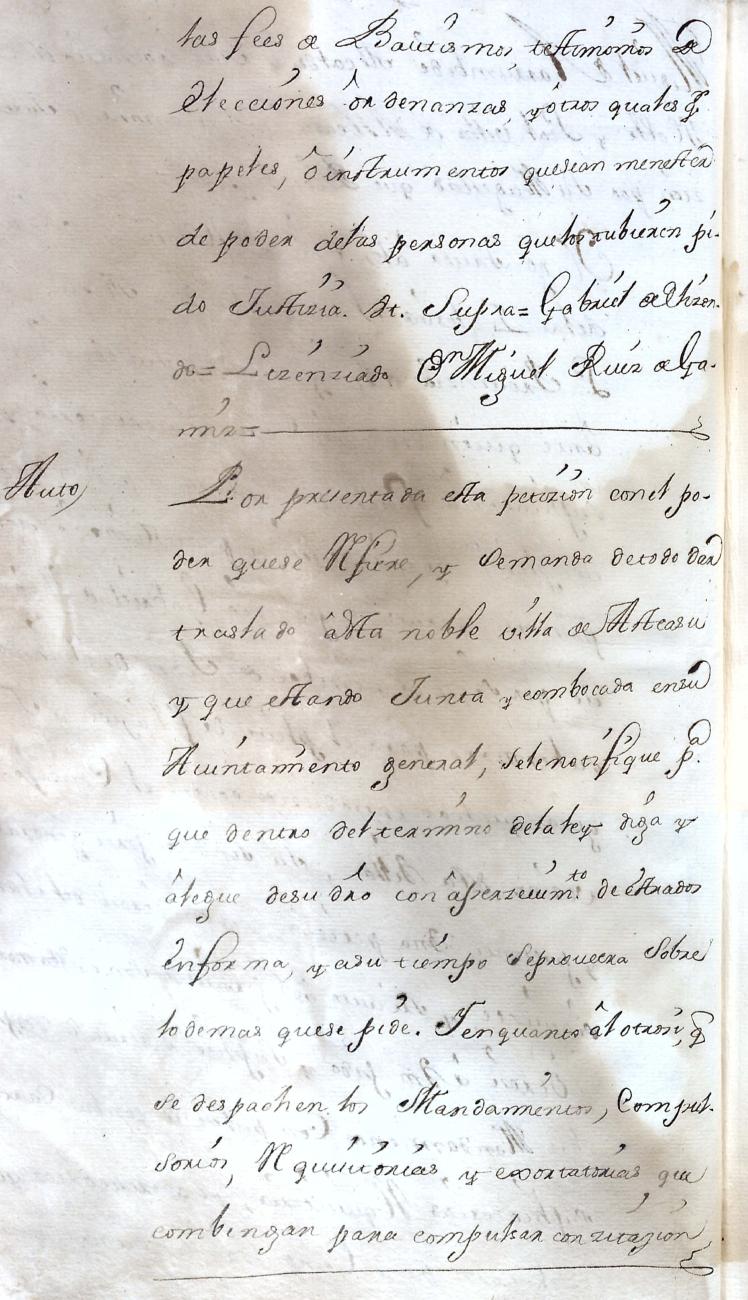 las fees de Bautismos testimonios de
elecciones ôrdenanzas, y otros quales q.
papeles, ô instrumentos quesean menester
de poder delas personas quelos tubieren pi-
do Justizia. Ut. Supra= Gabriel de Elizon-
do= Lizenziado Dn Miguel Ruiz de Ga-
miz=
Auto,
Por presentada esta petizion conel po-
der quese Refiere, y Semanda detodo dar
traslado âdha noble villa de Atteasu
y que estando Junta y combocada ensu
Auintamiento general, selenotifique pa.
que dentro deltermino delaley diga y
âlegue desu dro con âperzevimto. de êstrados
enforma, y asu tiempo Seproveera Sobre
lodemas quese pide. Y enquanto âl otrosi, q
se despachen los Mandamientos, Compul-
sorios, Requisitorias, y exortatorias que
combengan para compulsar con zitazion